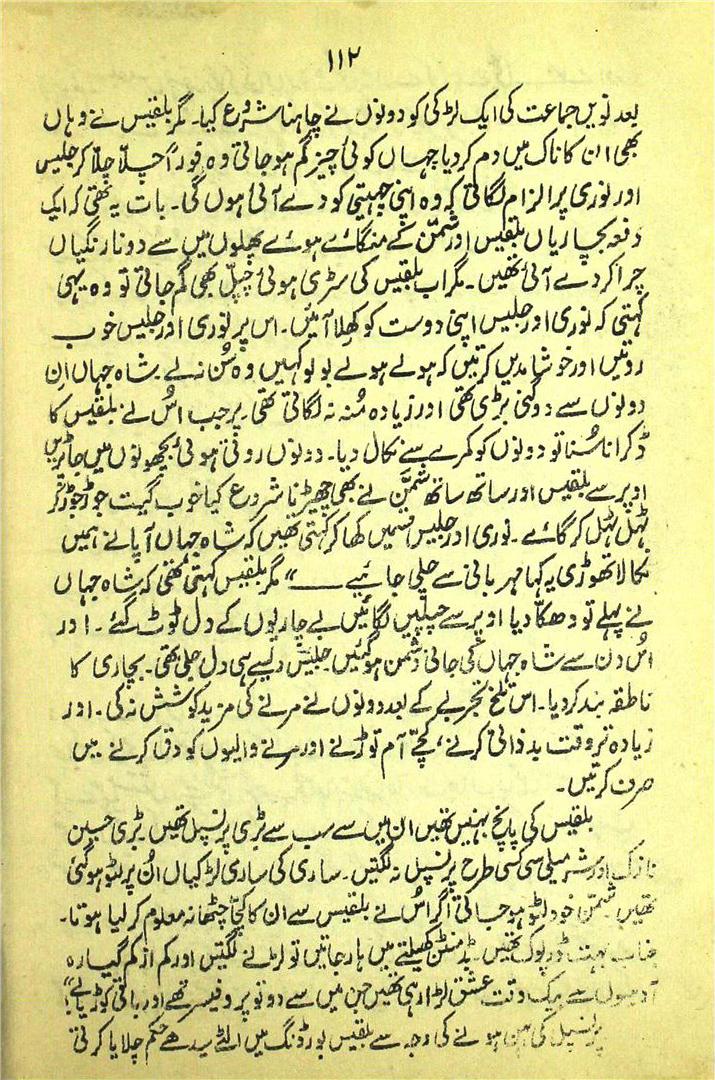 ۱۱۲
بعد نویں جماعت کی ایک لڑکی کو دونوں نے چاہنا شروع کیا۔ مگر بلقیس نے وہاں
بھی ان کا ناک میں دم کر دیا جہاں کوئی چیز گم ہو جاتی وہ فوراً چلّا چلّا کر جلیس
اور نوری پر الزام لگاتی کہ وہ اپنی چہیتی کو دے آئی ہوں گی۔ بات یہ تھی کہ ایک
دفعہ بچاریاں بلقیس اور شمّن کے منگائے ہوئے پھلوں میں سے دو نارنگیاں
چرا کر دے آئی تھیں۔ مگر اب بلقیس کی سڑی ہوئی چپل بھی گم جاتی تو وہ یہی
کہتی کہ نوری اور جلیس اپنی دوست کو کھلا آئیں۔ اس پر نوری اور جلیس خوب
روتیں اور خوشامدیں کرتیں کہ ہولے ہولے بولو کہیں وہ سُن نہ لے۔ شاہ جہاں اِن
دونوں سے دوگنی بڑی تھی اور زیادہ مُنہ نہ لگاتی تھی۔ پر جب اُس نے بلقیس کا
ڈکرانا سُنا تو دونوں کو کمرے سے نکال دیا۔ دونوں روتی ہوئی بچھونوں میں جا پڑیں
اوپر سے بلقیس اور ساتھ ساتھ شمّن نے بھی چھیڑنا شروع کیا خوب گیت جوڑ جوڑ کر
ٹہل ٹہل کر گائے۔ نوری اور جلیس قسمیں کھا کر کہتی تھیں کہ شاہ جہاں آپا نے ہمیں
نکالا تھوڑی یہ کہا مہربانی سے چلی جائیے ــــ" مگر بلقیس کہتی تھی کہ شاہ جہاں
نے پہلے تو دھکا دیا اوپر سے چپلیں لگائیں بے چاریوں کے دل ٹوٹ گئے۔ اور
اُس دن سے شاہ جہاں کی جانی دشمن ہو گئیں۔ جلیس ویسے ہی دل جلی تھی۔ بچاری کا
ناطقہ بند کر دیا۔ اس تلخ تجربے کے بعد دونوں نے مرنے کی مزید کوشش نہ کی۔ اور
زیادہ تر وقت بدذاتی کرنے، کچّے آم توڑنے اور مرنے والیوں کو دق کرنے میں
صرف کرتیں۔
بلقیس کی پانچ بہنیں تھیں ان میں سے سب سے بڑی پرنسپل تھیں۔ بڑی حسین
نازک اور شرمیلی سی کسی طرح پرنسپل نہ لگتیں۔ ساری کی ساری لڑکیاں اُن پر لٹو ہو گئی
تھیں۔ شمّن خود لٹو ہو جاتی اگر اُس نے بلقیس سے ان کا کچا چٹھا نہ معلوم کر لیا ہوتا۔
بہت ڈرپوک تھیں۔ بڈمنٹن کھیلتے میں ہار جاتیں تو لڑنے لگتیں اور کم از کم گیارہ
آدمیوں سے بیک وقت عشق لڑا رہی تھیں جن میں سے دو تو پروفیسر تھے اور باقی
پرنسپل کی بہن ہونے کی وجہ سے بلقیس بورڈنگ میں الٹے سیدھے حکم چلایا کرتی